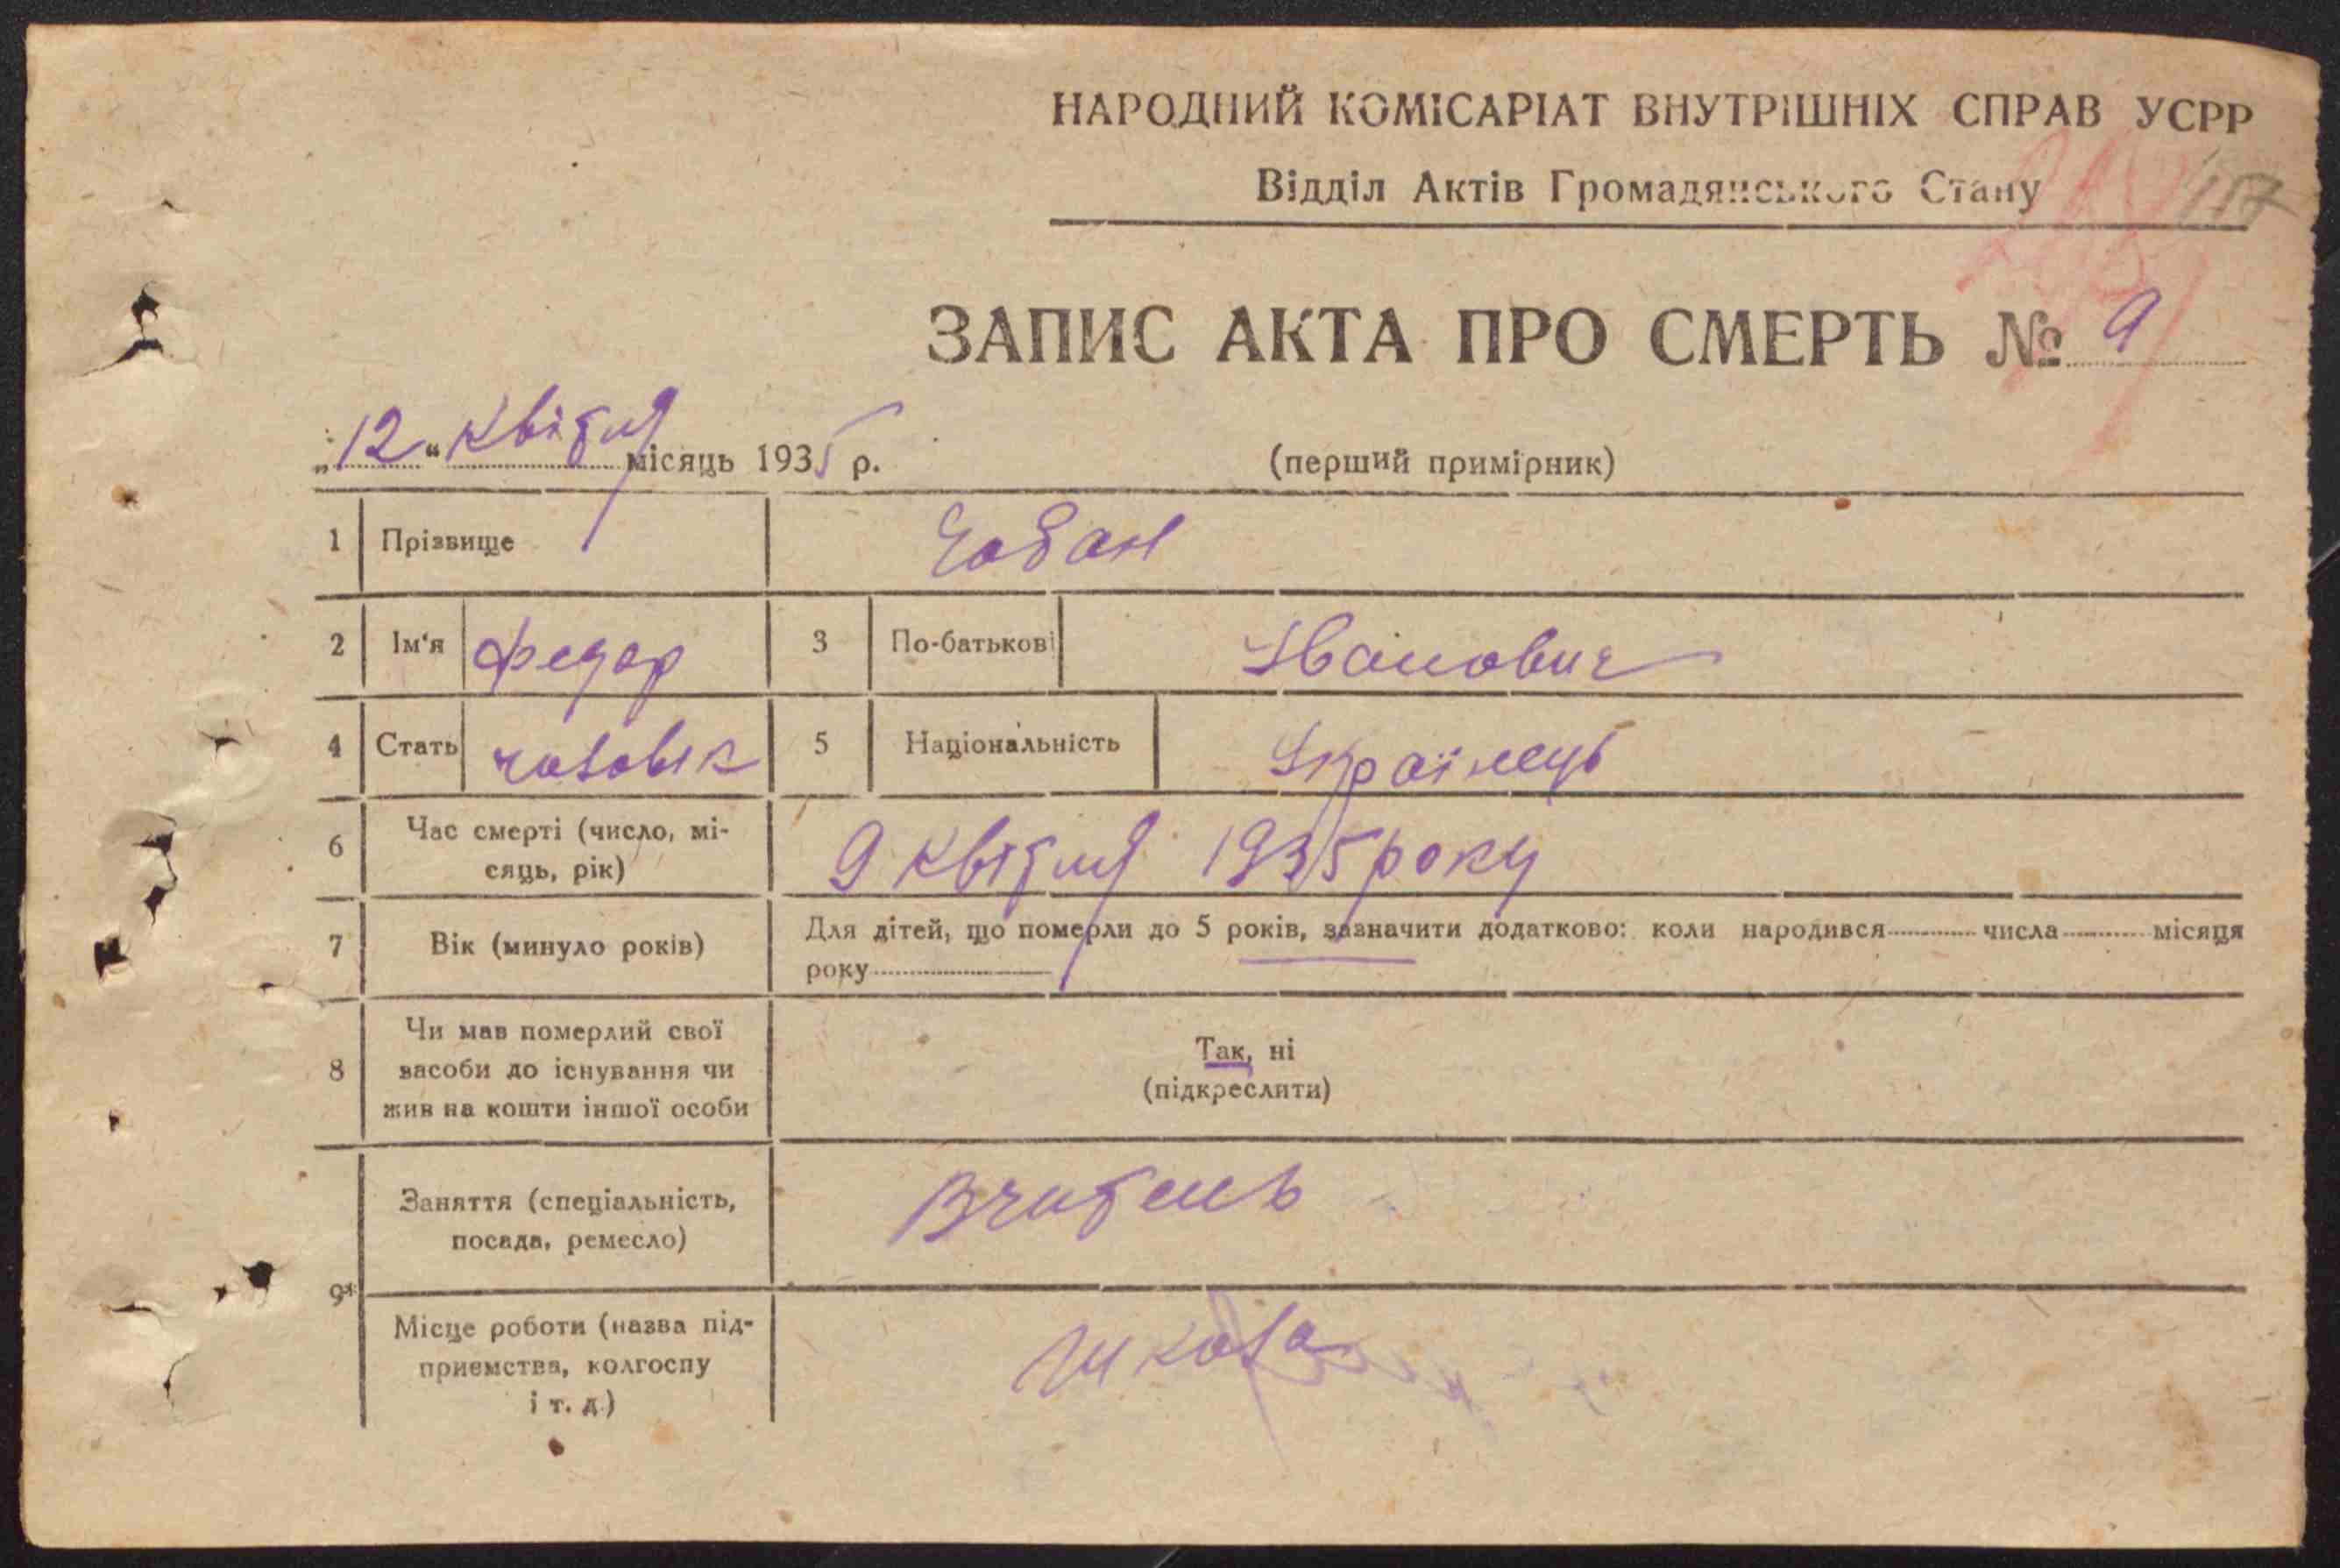 НАРОДНИЙ КОМІСАРІАТ ВНУТРІШНІХ СПРАВ УСРР
Відділ Актів Громадянського Стану
157
ЗАПИС АКТА ПРО СМЕРТЬ № 9
„12“ Квітня місяць 1935 р.
(перший примірник)
1 Прізвище Чобан
2 Ім'я Федор 3 По-батькові Іванович
4 Стать чоловік 5 Національність Українець
6 Час смерті (число, мі-
сяць, рік) 9 Квітня 1935 року
7 Вік (минуло років) Для дітей, що померли до 5 років, зазначити додатково: коли народився числа місяця
року
8 Чи мав померлий свої
засоби до існування чи
жив на кошти іншої особи
Так, ні
(підкреслити)
9* Заняття (спеціальність,
посада, ремесло) Вчитель
Місце роботи (назва під-
приємства, колгоспу
і т. д.) Школа